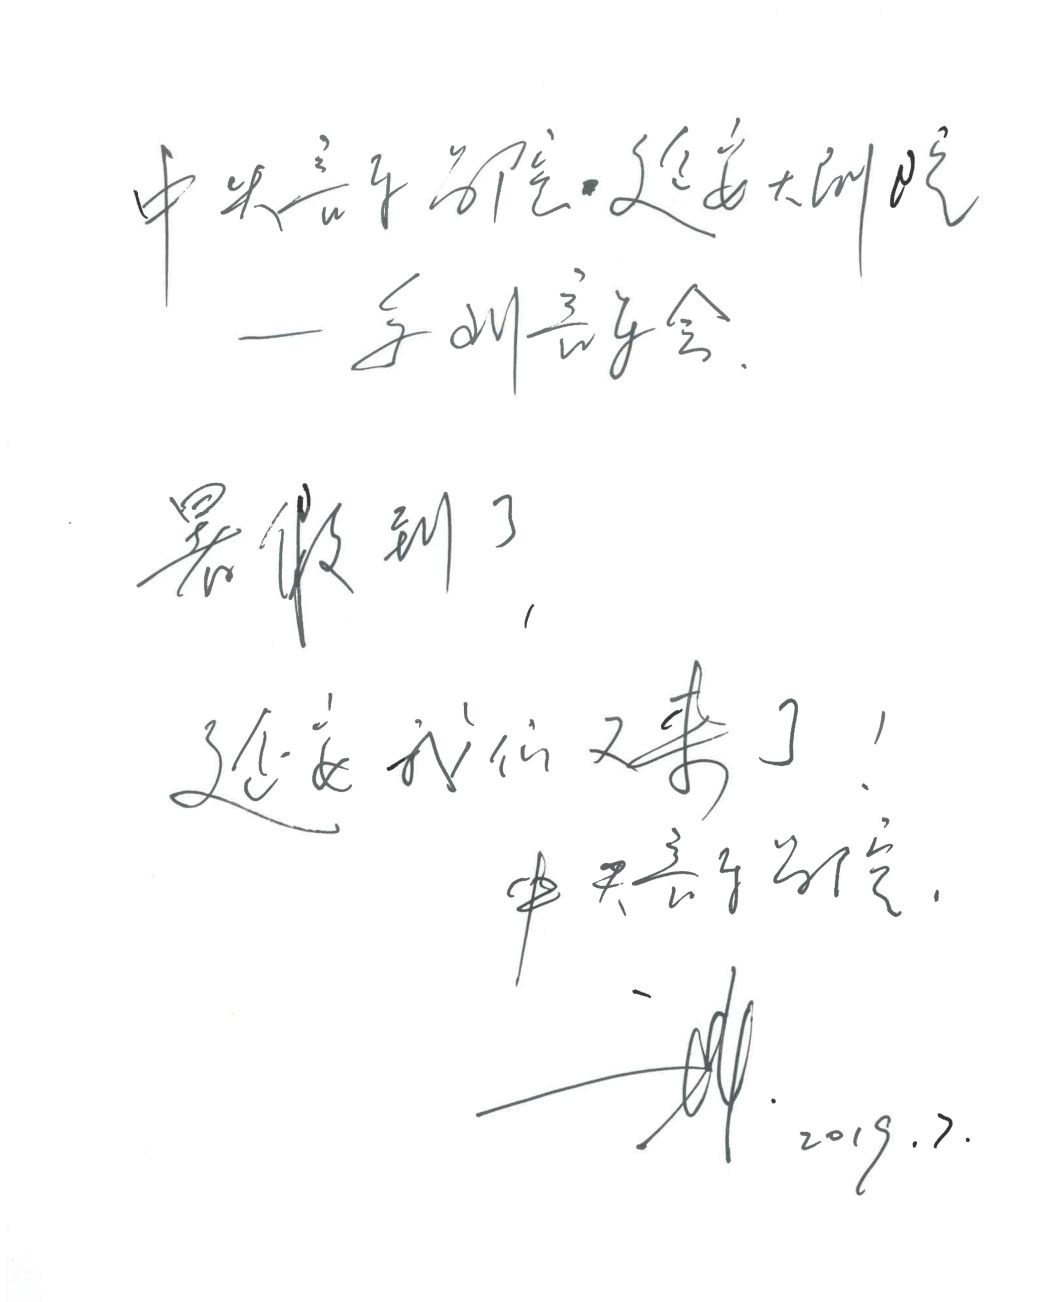 中央音乐学院·延安大剧院
一季训音乐会.
暑假到了,
延安我们又来了!
中央音乐学院.
2019.7.